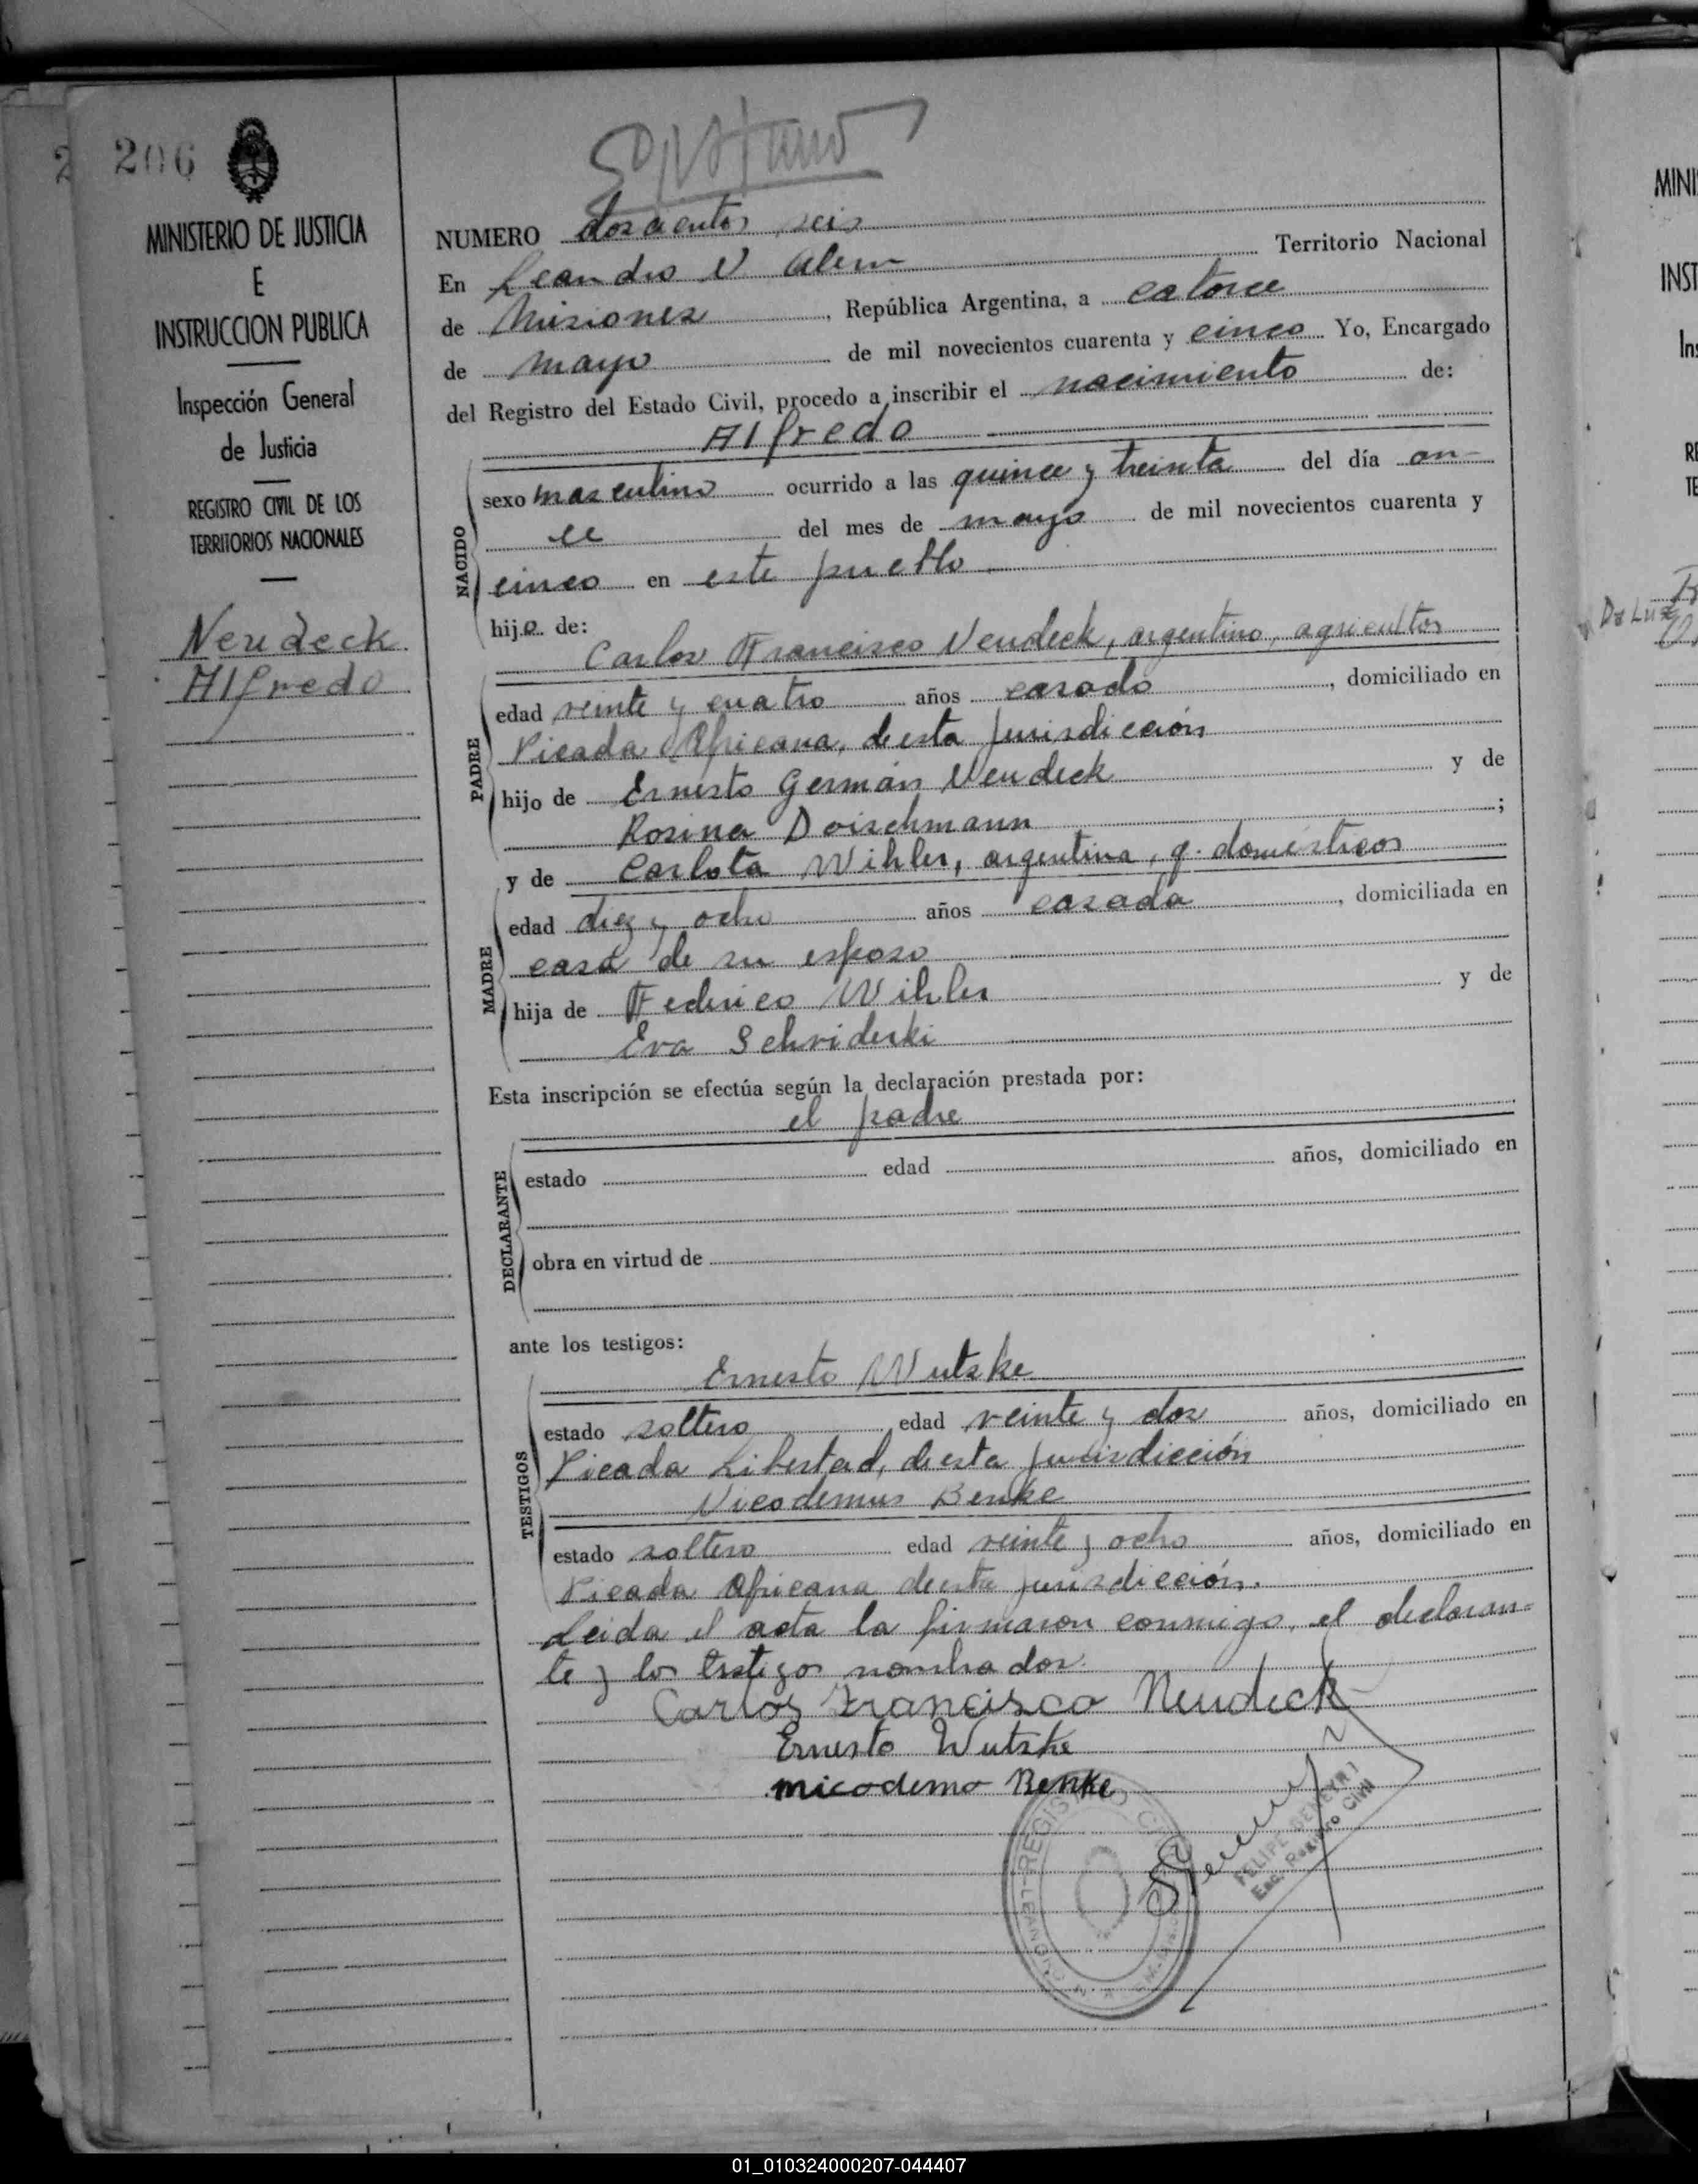 206
MINISTERIO DE JUSTICIA
E
INSTRUCCION PUBLICA
Inspección General
de Justicia
REGISTRO CIVIL DE LOS
TERRITORIOS NACIONALES
Neudeck
Alfredo
NUMERO doscientos seis
En Leandro N Alem Territorio Nacional
de Misiones, República Argentina, a catorce
de mayo de mil novecientos cuarenta y cinco Yo, Encargado
del Registro del Estado Civil, procedo a inscribir el nacimiento de:
Alfredo
NACIDO
sexo masculino ocurrido a las quince y treinta del día on-
ce del mes de mayo de mil novecientos cuarenta y
cinco en este pueblo
hijo de:
Carlos Francisco Neudeck, argentino, agricultor
PADRE
edad veinte y cuatro años casado, domiciliado en
Picada Africana, de esta jurisdicción
hijo de Ernesto Germán Neudeck y de
Rosina Doischmann;
y de Carlota Wihler, argentina, q. domésticos
MADRE
edad diez y ocho años casada, domiciliada en
casa de su esposo
hija de Federico Wihler y de
Eva Schviderki
Esta inscripción se efectúa según la declaración prestada por:
el padre
DECLARANTE
estado edad años, domiciliado en
obra en virtud de
ante los testigos:
Ernesto Wutzke
TESTIGOS
estado soltero edad veinte y dos años, domiciliado en
Picada Libertad, de esta jurisdicción
Nicodemus Benke
estado soltero edad veinte y ocho años, domiciliado en
Picada Africana de esta jurisdicción.
Leida el acta la firmaron conmigo, el declaran-
te y los testigos nombrados.
Carlos Francisco Neudeck
Ernesto Wutzke
nicodemo Benke
FELIPE BENEYRI
Enc. Registro Civil
MINI
INST
De Luz
01_010324000207-044407